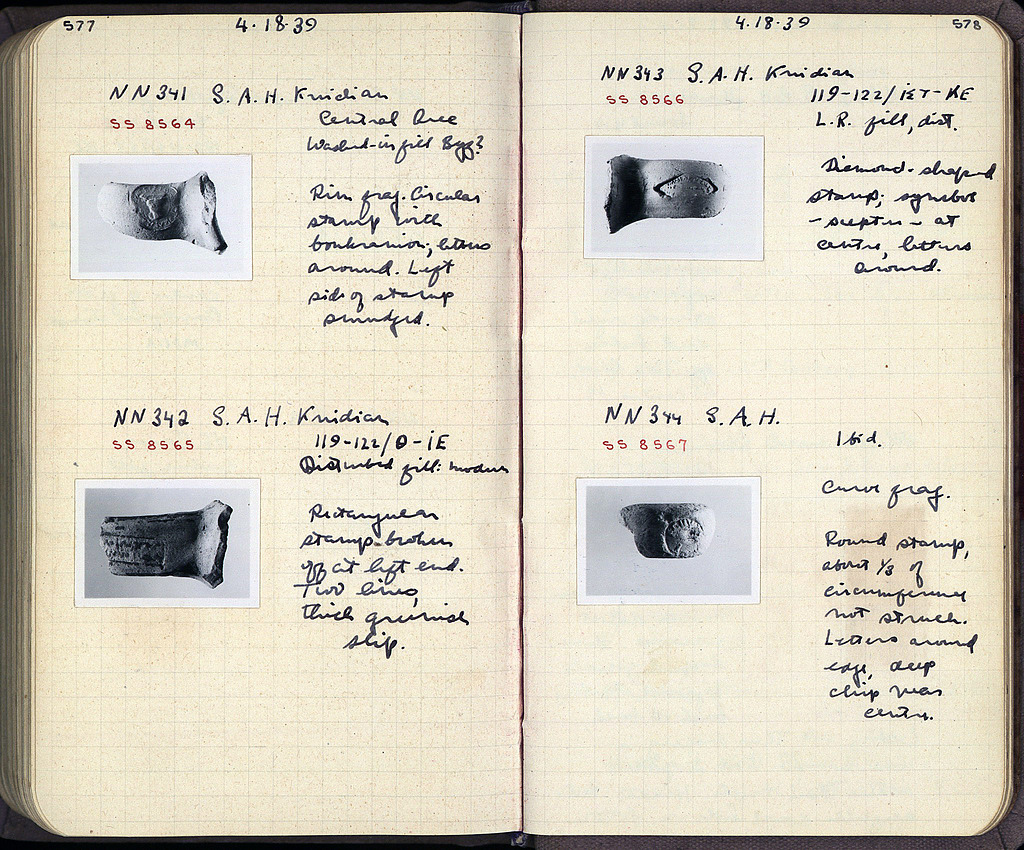 577
4.18.39
NN 341 S.A.H. Knidian
SS 8564
Central Area
Washed-in fill Byz?
Rim frag. Circular
stamp with
boukranion; letters
around. Left
side of stamp
smudged.
NN 342 S.A.H. Knidian
SS 8565
119-122/Θ-ΙΕ
Disturbed fill: modern
Rectangular
stamp broken
off at left end.
Two lines,
thick greenish
slip.
4.18.39
578
NN 343 S.A.H. Knidian
SS 8566
L.R. fill, dist.
Diamond-shaped
stamp; symbol
- scepter - at
centre, letters
around.
NN 344 S.A.H.
SS 8567
Ibid.
Curve frag.
Round stamp,
about 1/3 of
circumference
not struck.
Letters around
edge, deep
chip near
centre.